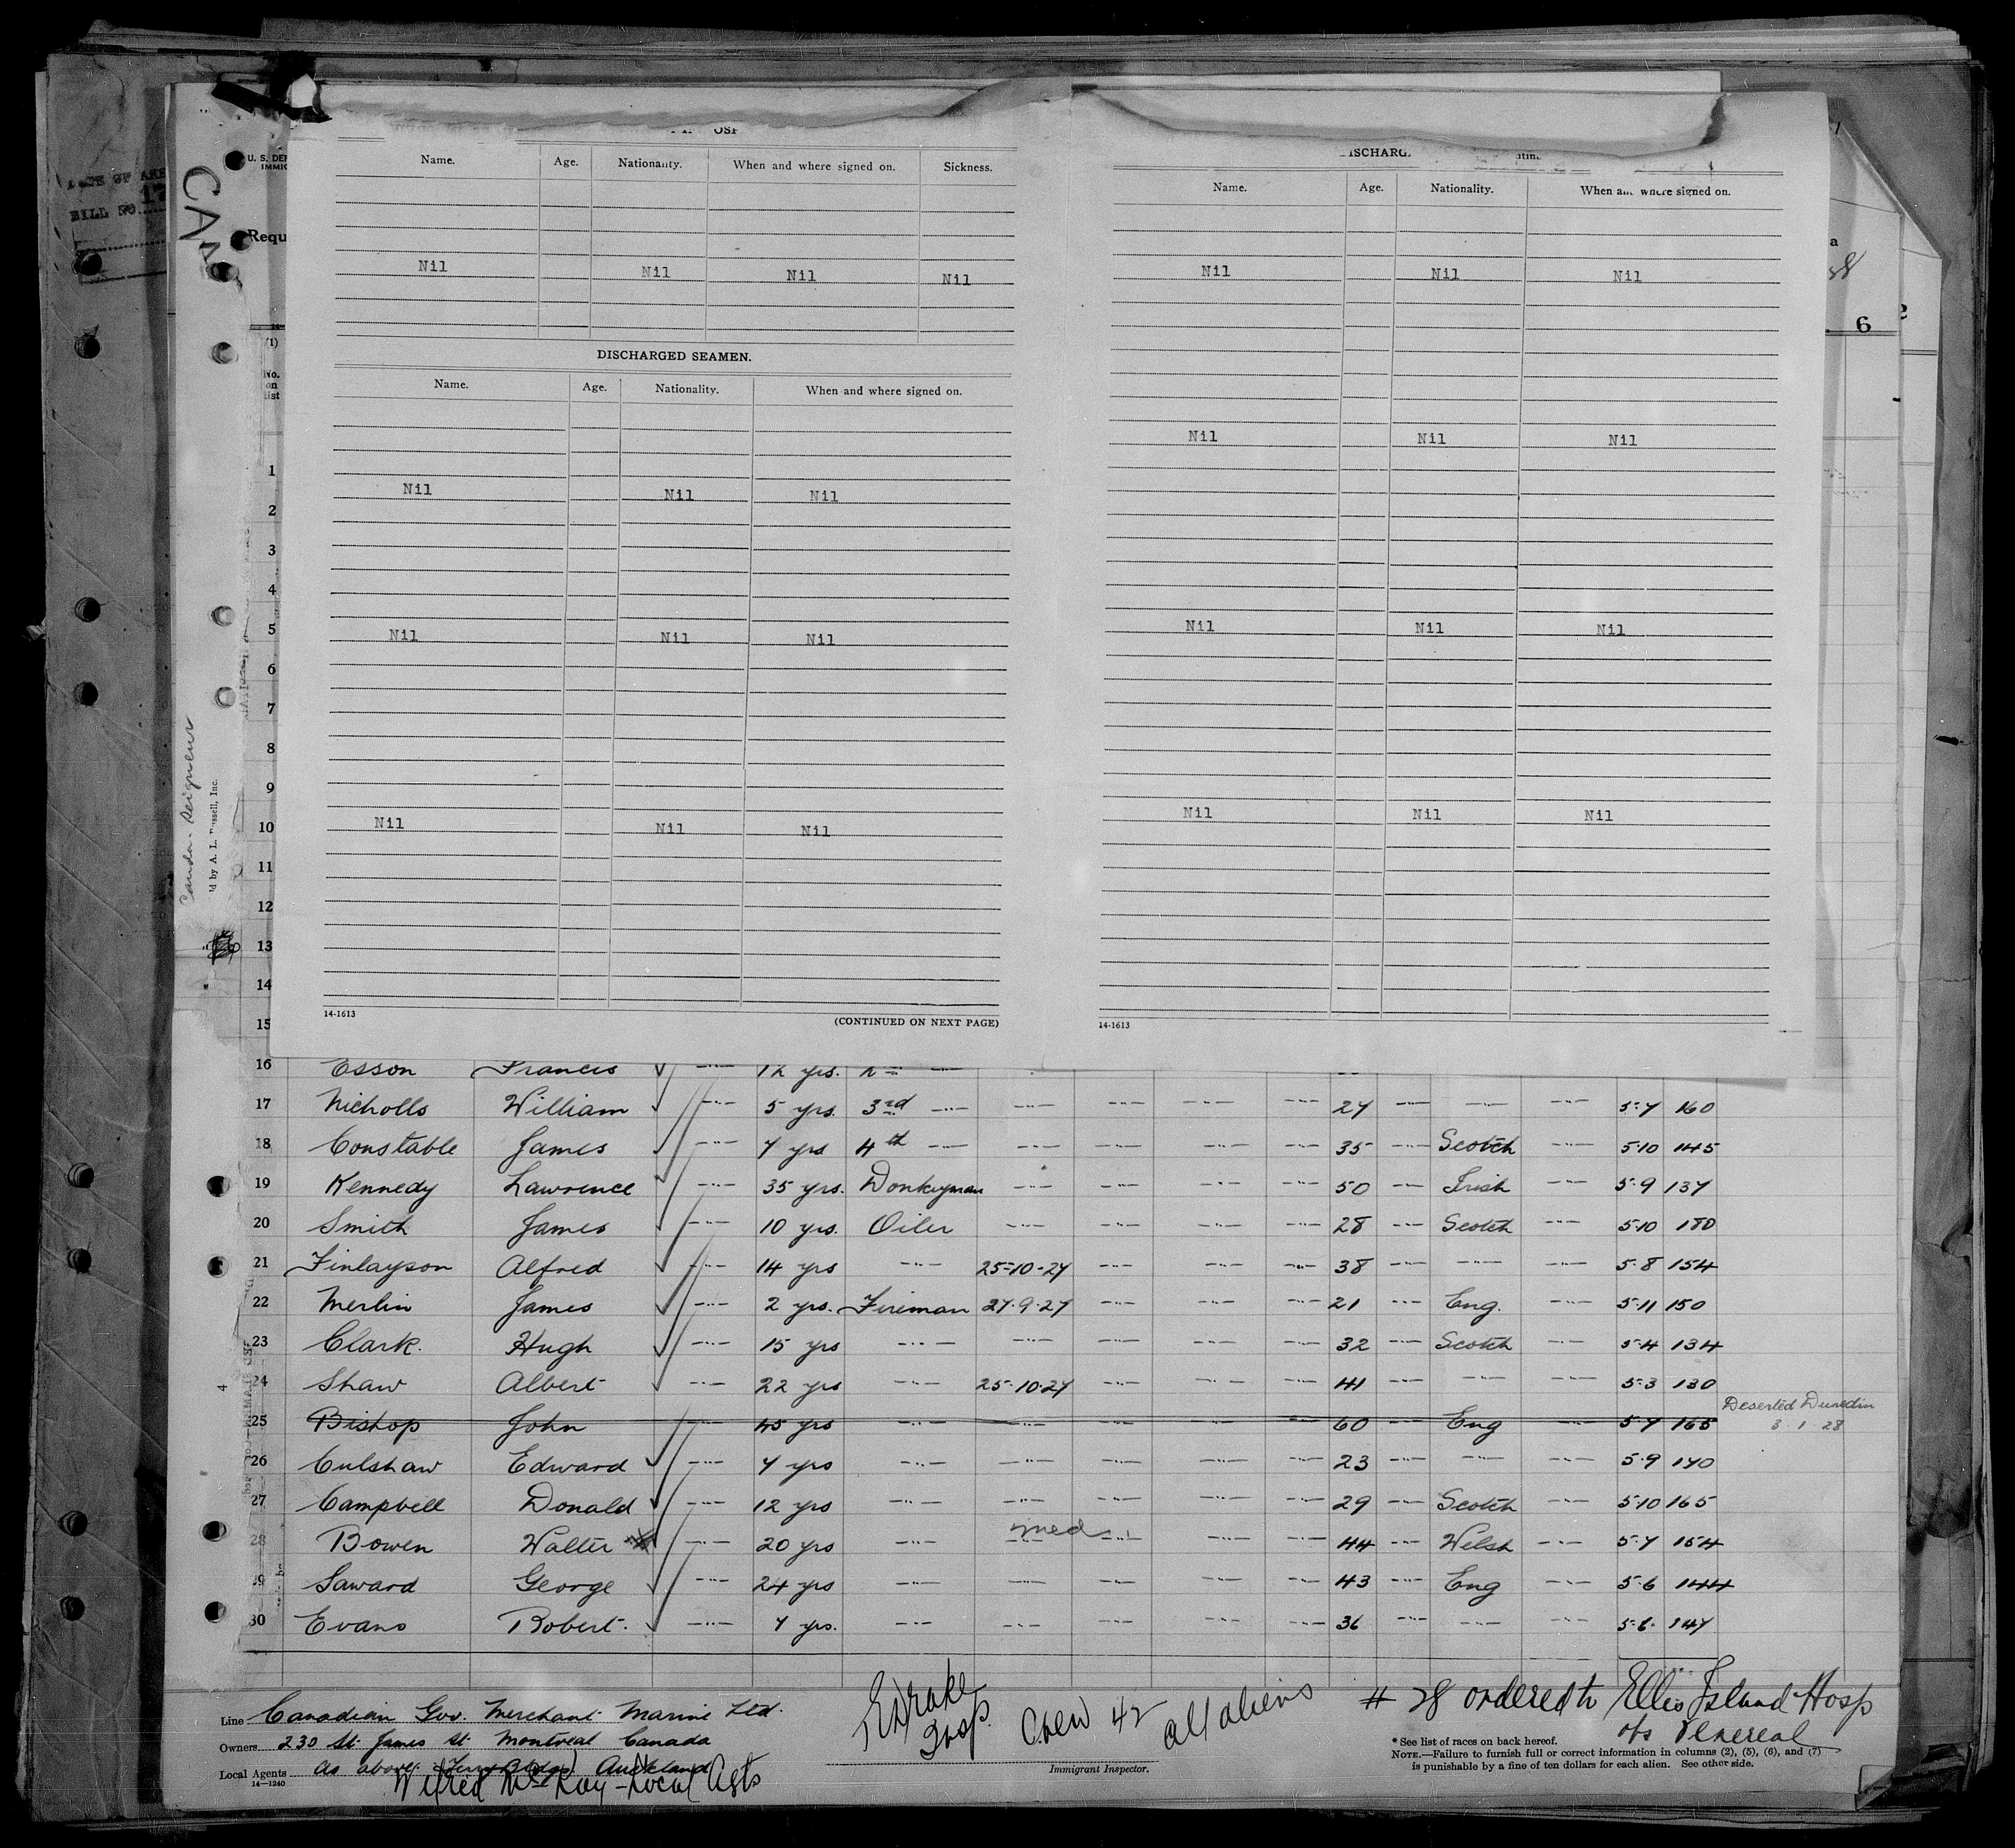 U. S. DEP
IMMIG
DATE OF ARR
BILL NO. 17
CAN
Requ
OSP
Name. Age. Nationality. When and where signed on. Sickness.
Nil Nil Nil Nil
DISCHARGED SEAMEN.
Name. Age. Nationality. When and where signed on.
Nil Nil Nil
Nil Nil Nil
Nil Nil Nil
14-1613 (CONTINUED ON NEXT PAGE)
ISCHARG
Name. Age. Nationality. When and where signed on.
Nil Nil Nil
Nil Nil Nil
Nil Nil Nil
Nil Nil Nil
14-1613
a
6
(1)
No.
on
list
1
2
3
4
5
6
7
8
9
10
11
12
13
14
15
Canda. Seigneur
'd by A. L. Russell, Inc.
4
16 Esson Francis ✓ —"— 12 yrs. 2nd —"—
17 Nicholls William ✓ —"— 5 yrs. 3rd —"— —"— —"— —"— —"— 27 —"— —"— —"— 5·7 160
18 Constable James ✓ —"— 7 yrs 4th —"— —"— —"— —"— —"— 35 —"— Scotch —"— 5·10 145
19 Kennedy Lawrence ✓ —"— 35 yrs. Donkeyman —"— —"— —"— —"— 50 —"— Irish —"— 5·9 137
20 Smith James ✓ —"— 10 yrs. Oiler —"— —"— —"— —"— 28 —"— Scotch —"— 5·10 180
21 Finlayson Alfred ✓ —"— 14 yrs —"— 25-10-27 —"— —"— —"— 38 —"— —"— —"— 5·8 154
22 Merlin James ✓ —"— 2 yrs. Fireman 27·9·27 —"— —"— —"— 21 —"— Eng. —"— 5·11 150
23 Clark. Hugh ✓ —"— 15 yrs —"— —"— —"— —"— —"— 32 —"— Scotch —"— 5·4 134
24 Shaw Albert ✓ —"— 22 yrs —"— 25·10·27 —"— —"— —"— 41 —"— —"— —"— 5·3 130
25 Bishop John —"— 45 yrs —"— —"— —"— —"— —"— 60 —"— Eng —"— 5·7 165 Deserted Dunedin
3·1·28
26 Culshaw Edward ✓ —"— 7 yrs —"— —"— —"— —"— —"— 23 —"— —"— —"— 5·9 140
27 Campbell Donald ✓ —"— 12 yrs —"— —"— —"— —"— —"— 29 —"— Scotch —"— 5·10 165
28 Bowen Walter —"— 20 yrs —"— med —"— —"— —"— 44 —"— Welsh —"— 5·7 154
29 Saward George ✓ —"— 24 yrs —"— —"— —"— —"— —"— 43 —"— Eng —"— 5·6 144
30 Evans Robert. ✓ —"— 7 yrs. —"— —"— —"— —"— —"— 36 —"— —"— —"— 5·6· 147
Line Canadian Gov. Merchant Marine Ltd.
Owners 230 St. James St. Montreal Canada
Local Agents As above. Auckland
14—1240
Wilfred McKay - Local Agts
Drake
Insp.
Crew 42 all aliens
Immigrant Inspector.
# 28 ordered to Ellis Island Hosp
o/c Venereal
* See list of races on back hereof.
NOTE.—Failure to furnish full or correct information in columns (2), (5), (6), and (7)
is punishable by a fine of ten dollars for each alien. See other side.